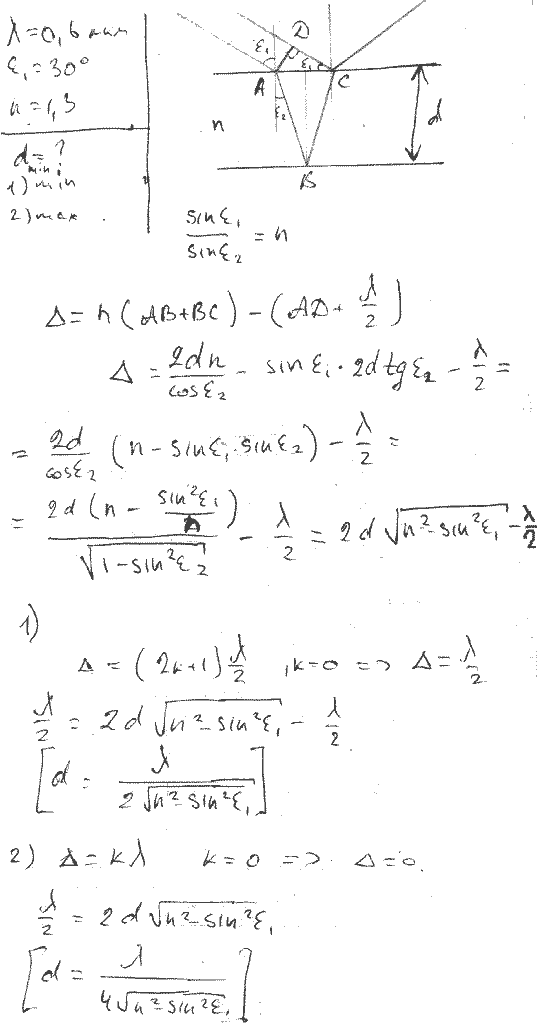 λ=0,6 мкм
ε₁=30°
n=1,3
d min = ?
1) min
2) max
D
ε₁
ε₁
A
C
ε₂
n
d
B
sin ε₁ / sin ε₂ = n
Δ = n (AB+BC) - (AD + λ/2)
Δ = 2dn / cos ε₂ - sin ε₁ · 2d tg ε₂ - λ/2 =
= 2d / cos ε₂ (n - sin ε₁ · sin ε₂) - λ/2 =
= 2d (n - sin²ε₁ / n) / √(1-sin²ε₂) - λ/2 = 2d √(n² - sin²ε₁) - λ/2
1)
Δ = (2k+1) λ/2 , k=0 => Δ = λ/2
λ/2 = 2d √(n² - sin²ε₁) - λ/2
[d = λ / 2√(n² - sin²ε₁)]
2) Δ = kλ k=0 => Δ=0.
λ/2 = 2d √(n² - sin²ε₁)
[d = λ / 4√(n² - sin²ε₁)]